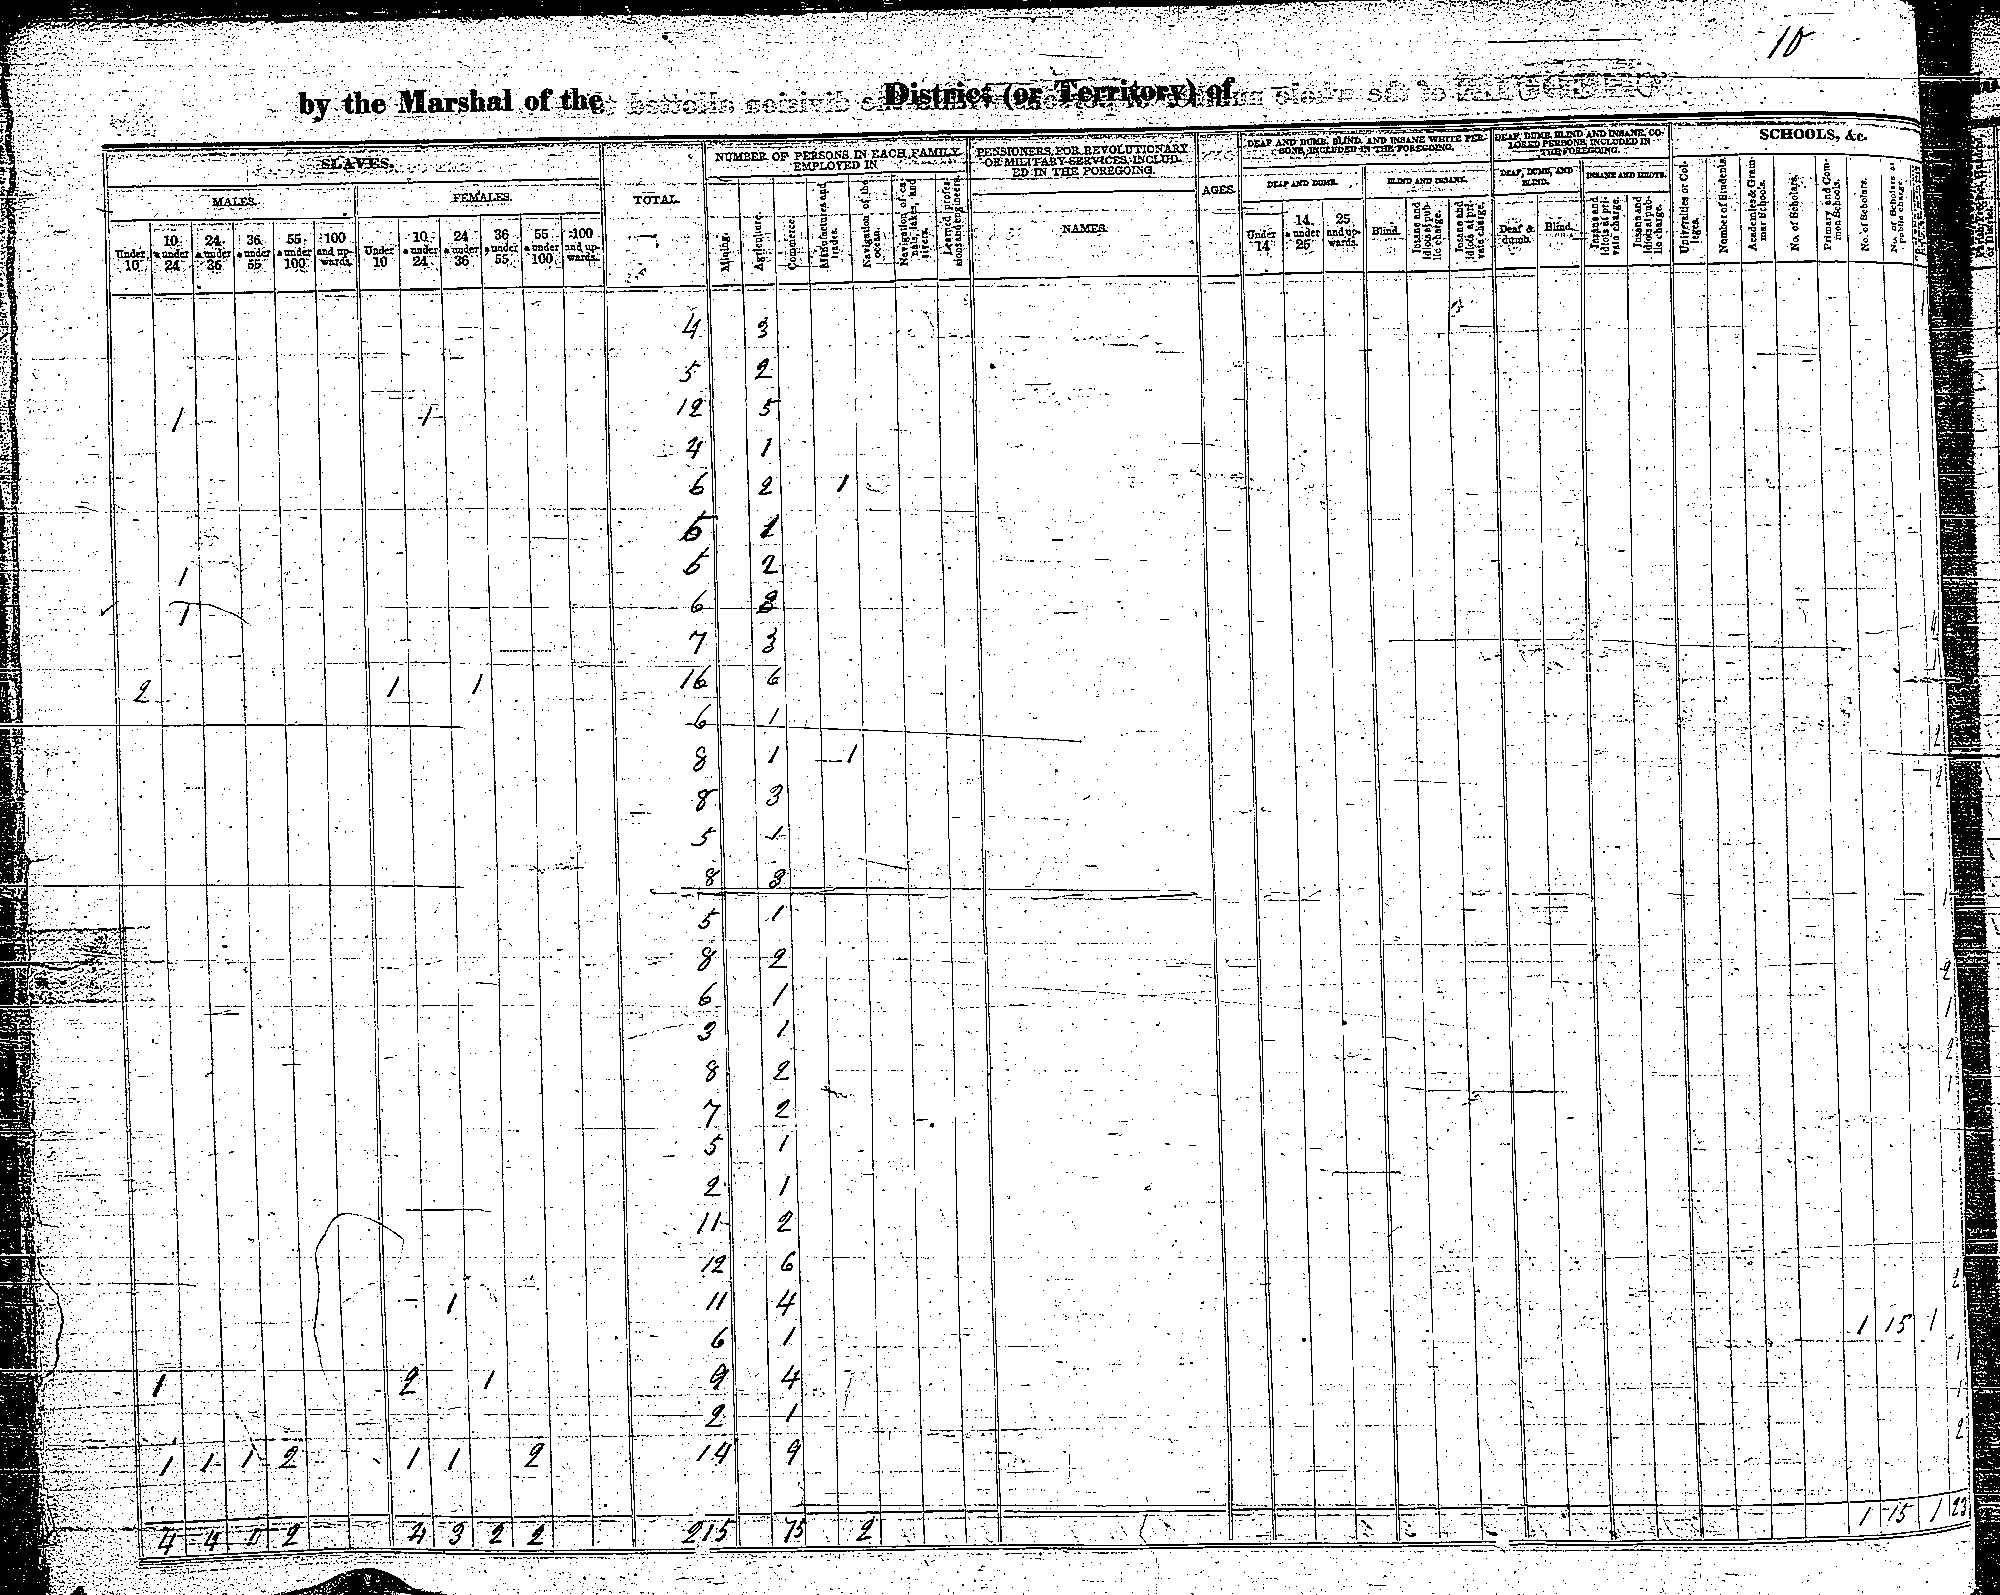 10
by the Marshal of the District (or Territory) of
SLAVES.
TOTAL.
NUMBER OF PERSONS IN EACH FAMILY EMPLOYED IN
PENSIONERS FOR REVOLUTIONARY OR MILITARY SERVICES, INCLUDED IN THE FOREGOING.
AGES.
DEAF AND DUMB, BLIND, AND INSANE WHITE PERSONS, INCLUDED IN THE FOREGOING.
DEAF, DUMB, BLIND AND INSANE, COLORED PERSONS, INCLUDED IN THE FOREGOING.
SCHOOLS, &c.
MALES. FEMALES.
NAMES.
DEAF AND DUMB. BLIND AND INSANE. DEAF, DUMB, AND BLIND. INSANE AND IDIOTS.
Under 10 10 & under 24 24 & under 36 36 & under 55 55 & under 100 100 and upwards.
Under 10 10 & under 24 24 & under 36 36 & under 55 55 & under 100 100 and upwards.
Mining. Agriculture. Commerce. Manufactures and trades. Navigation of the ocean. Navigation of canals, lakes, and rivers. Learned professions and engineers.
Under 14 14 & under 25 25 and upwards. Blind. Insane and idiots at public charge. Insane and idiots at private charge.
Deaf & dumb. Blind. Insane and idiots at private charge. Insane and idiots at public charge.
Universities or Colleges. Number of Students. Academies & Grammar Schools. No. of Scholars. Primary and Common Schools. No. of Scholars. No. of Scholars at public charge.
4 3
5 2
1 1 12 5
4 1
6 2 1
5 1
1 5 2
1 6
7 3
2 1 1 16 6
6 1
8 1 1
8 3
5 1
8 3
5 1
8 2
6 1
3 1
8 2
7 2
5 1
2 1
11 2
12 6
1 11 4
6 1 1 15 1
1 2 1 9 4
2 1
1 1 1 2 1 1 2 14 9
4 4 1 2 4 3 2 2 215 75 2 1 15 1 23